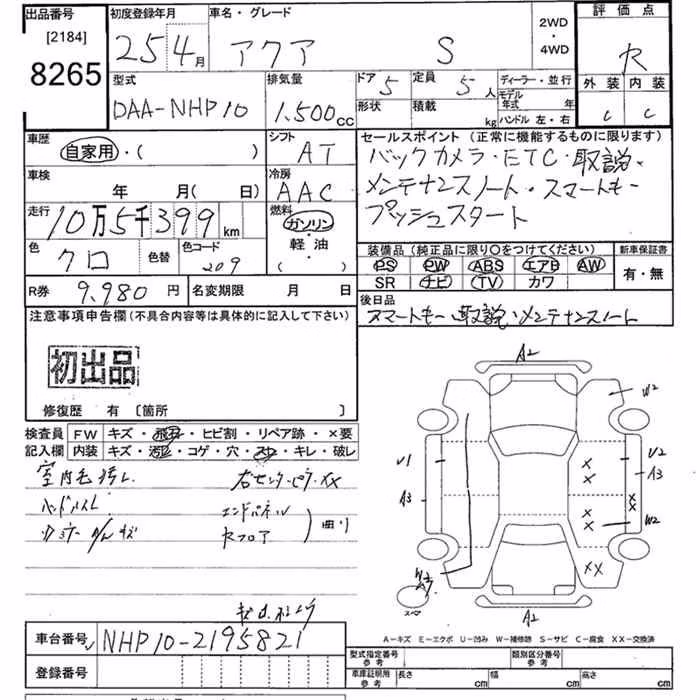 出品番号 [2184] 8265
初度登録年月 25年 4月
車名・グレード アクア S
2WD ・ 4WD
評価点 R
外装 内装
C C
型式 DAA-NHP10
排気量 1.500cc
ドア 5 定員 5人
形状 積載 kg
ディーラー・並行
モデル年式 年
ハンドル 左・右
車歴 自家用・( )
シフト AT
セールスポイント (正常に機能するものに限ります)
バックカメラ・ETC・取説・
メンテナンスノート・スマートキー
プッシュスタート
車検 年 月( 日)
冷房 AAC
走行 10万5千399km
燃料 ガソリン・軽油・( )
色 クロ 色替 色コード 209
装備品 (純正品に限り○をつけてください) 新車保証書
PS PW ABS エアB AW 有・無
SR ナビ TV カワ
R券 9,980円 名変期限 月 日
後日品
スマートキー、取説・メンテナンスノート
注意事項申告欄(不具合内容等は具体的に記入して下さい)
初出品
修復歴 有 〔箇所 〕
検査員記入欄
FW キズ・飛石・ヒビ割・リペア跡・×要
内装 キズ・汚レ・コゲ・穴・スレ・キレ・破レ
室内毛汚レ 右センターピラーXX
ハンドルスレ エンドパネル
Rフロア 曲り
A2
W2
U1 U2
A3 A3
W2
××
A2
スペア
A-キズ E-エクボ U-凹み W-補修跡 S-サビ C-腐食 XX-交換済
車台番号 NHP10-2195821
登録番号
型式指定番号 参考 類別区分番号 参考
車庫証明用 参考 長さ cm 幅 cm 高さ cm